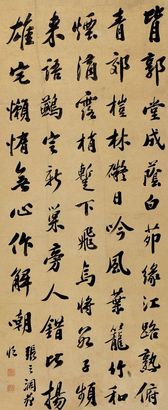 背郭堂成蔭白茆緣江路熟俯
青郊榿林礙日吟風葉籠竹和
煙滴露梢暫下飛烏將數子頻
來語燕定新巢旁人錯比揚
雄宅懶惰無心作解嘲
張之洞